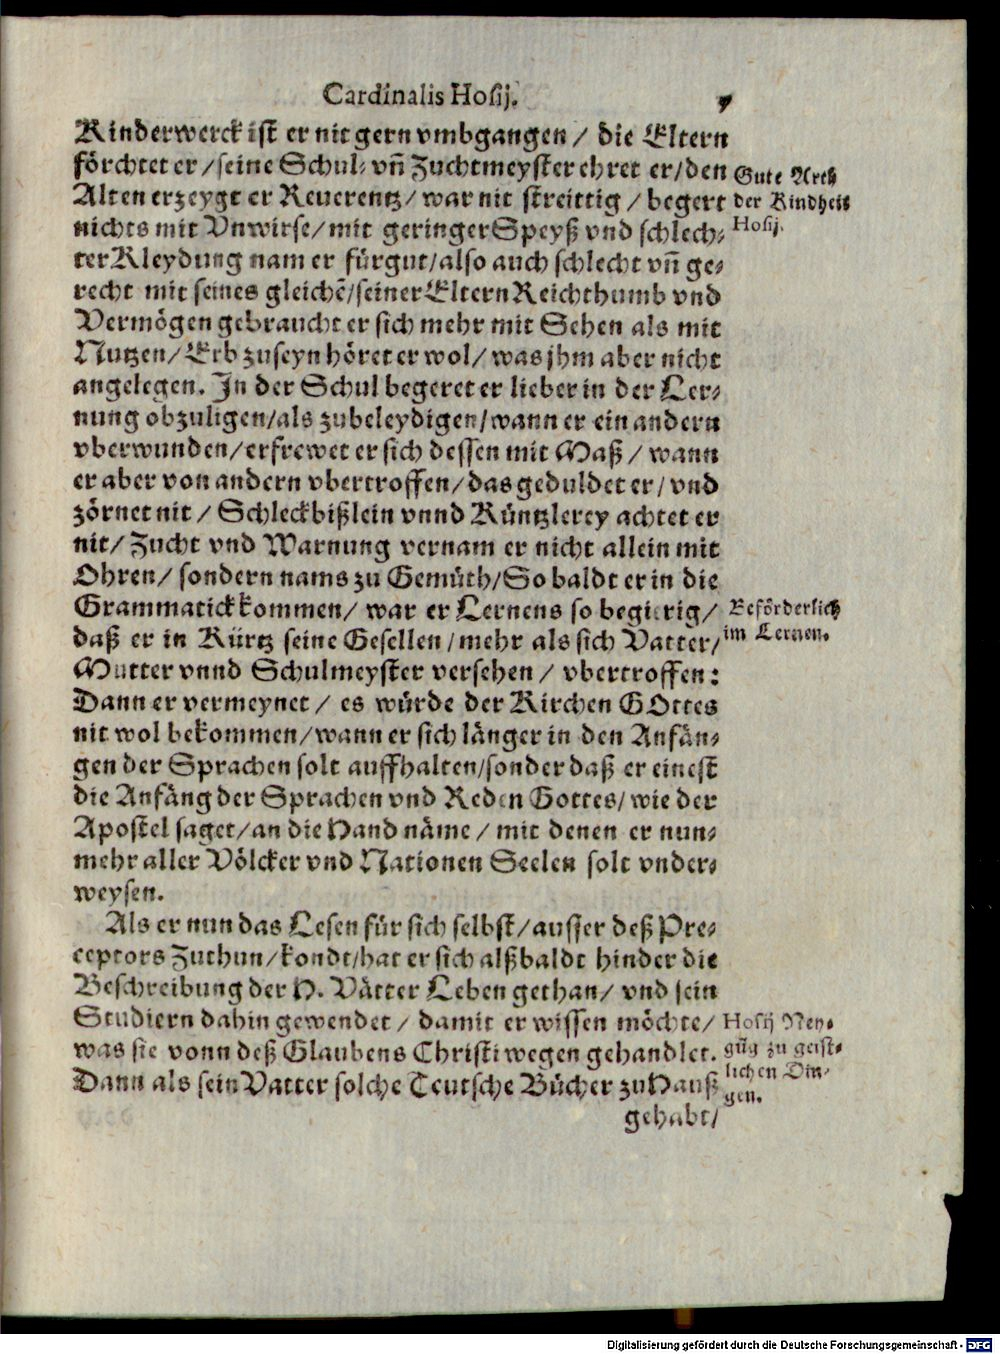 Cardinalis Hosij.
Kinderwerck ist er nit gern vmbgangen / die Eltern
förchtet er / seine Schul- vñ Zuchtmeyster ehret er / den
Alten erzeygt er Reuerentz / war nit streittig / begert
nichts mit Vnwirse / mit geringer Speyß vnd schlech-
ter Kleydung nam er fürgut / also auch schlecht vñ ge-
recht mit seines gleichẽ / seiner Eltern Reichthumb vnd
Vermögen gebraucht er sich mehr mit Sehen als mit
Nutzen / Erb zuseyn höret er wol / was jhm aber nicht
angelegen. In der Schul begeret er lieber in der Ler-
nung obzuligen / als zubeleydigen / wann er ein andern
vberwunden / erfrewet er sich dessen mit Maß / wann
er aber von andern vbertroffen / das geduldet er / vnd
zörnet nit / Schleckbißlein vnnd Küntzlerey achtet er
nit / Zucht vnd Warnung vernam er nicht allein mit
Ohren / sondern nams zu Gemüth / So baldt er in die
Grammatick kommen / war er Lernens so begirig /
daß er in Kürtz seine Gesellen / mehr als sich Vatter /
Mutter vnnd Schulmeyster versehen / vbertroffen:
Dann er vermeynet / es würde der Kirchen GOttes
nit wol bekommen / wann er sich länger in den Anfän-
gen der Sprachen solt auffhalten / sonder daß er einest
die Anfäng der Sprachen vnd Reden Gottes / wie der
Apostel saget / an die Hand näme / mit denen er nun-
mehr aller Völcker vnd Nationen Seelen solt vnder-
weysen.
Als er nun das Lesen für sich selbst / ausser deß Pre-
ceptors Zuthun / kondt / hat er sich alßbaldt hinder die
Beschreibung der H. Vätter Leben gethan / vnd sein
Studiern dahin gewendet / damit er wissen möchte /
was sie vonn deß Glaubens Christi wegen gehandlet.
Dann als sein Vatter solche Teutsche Bücher zu Hauß
gehabt /
Gute Arth
der Kindheit
Hosij.
Beförderlich
im Lernen.
Hosij Ney-
gũg zu geist-
lichen Din-
gen.
Digitalisierung gefördert durch die Deutsche Forschungsgemeinschaft - DFG